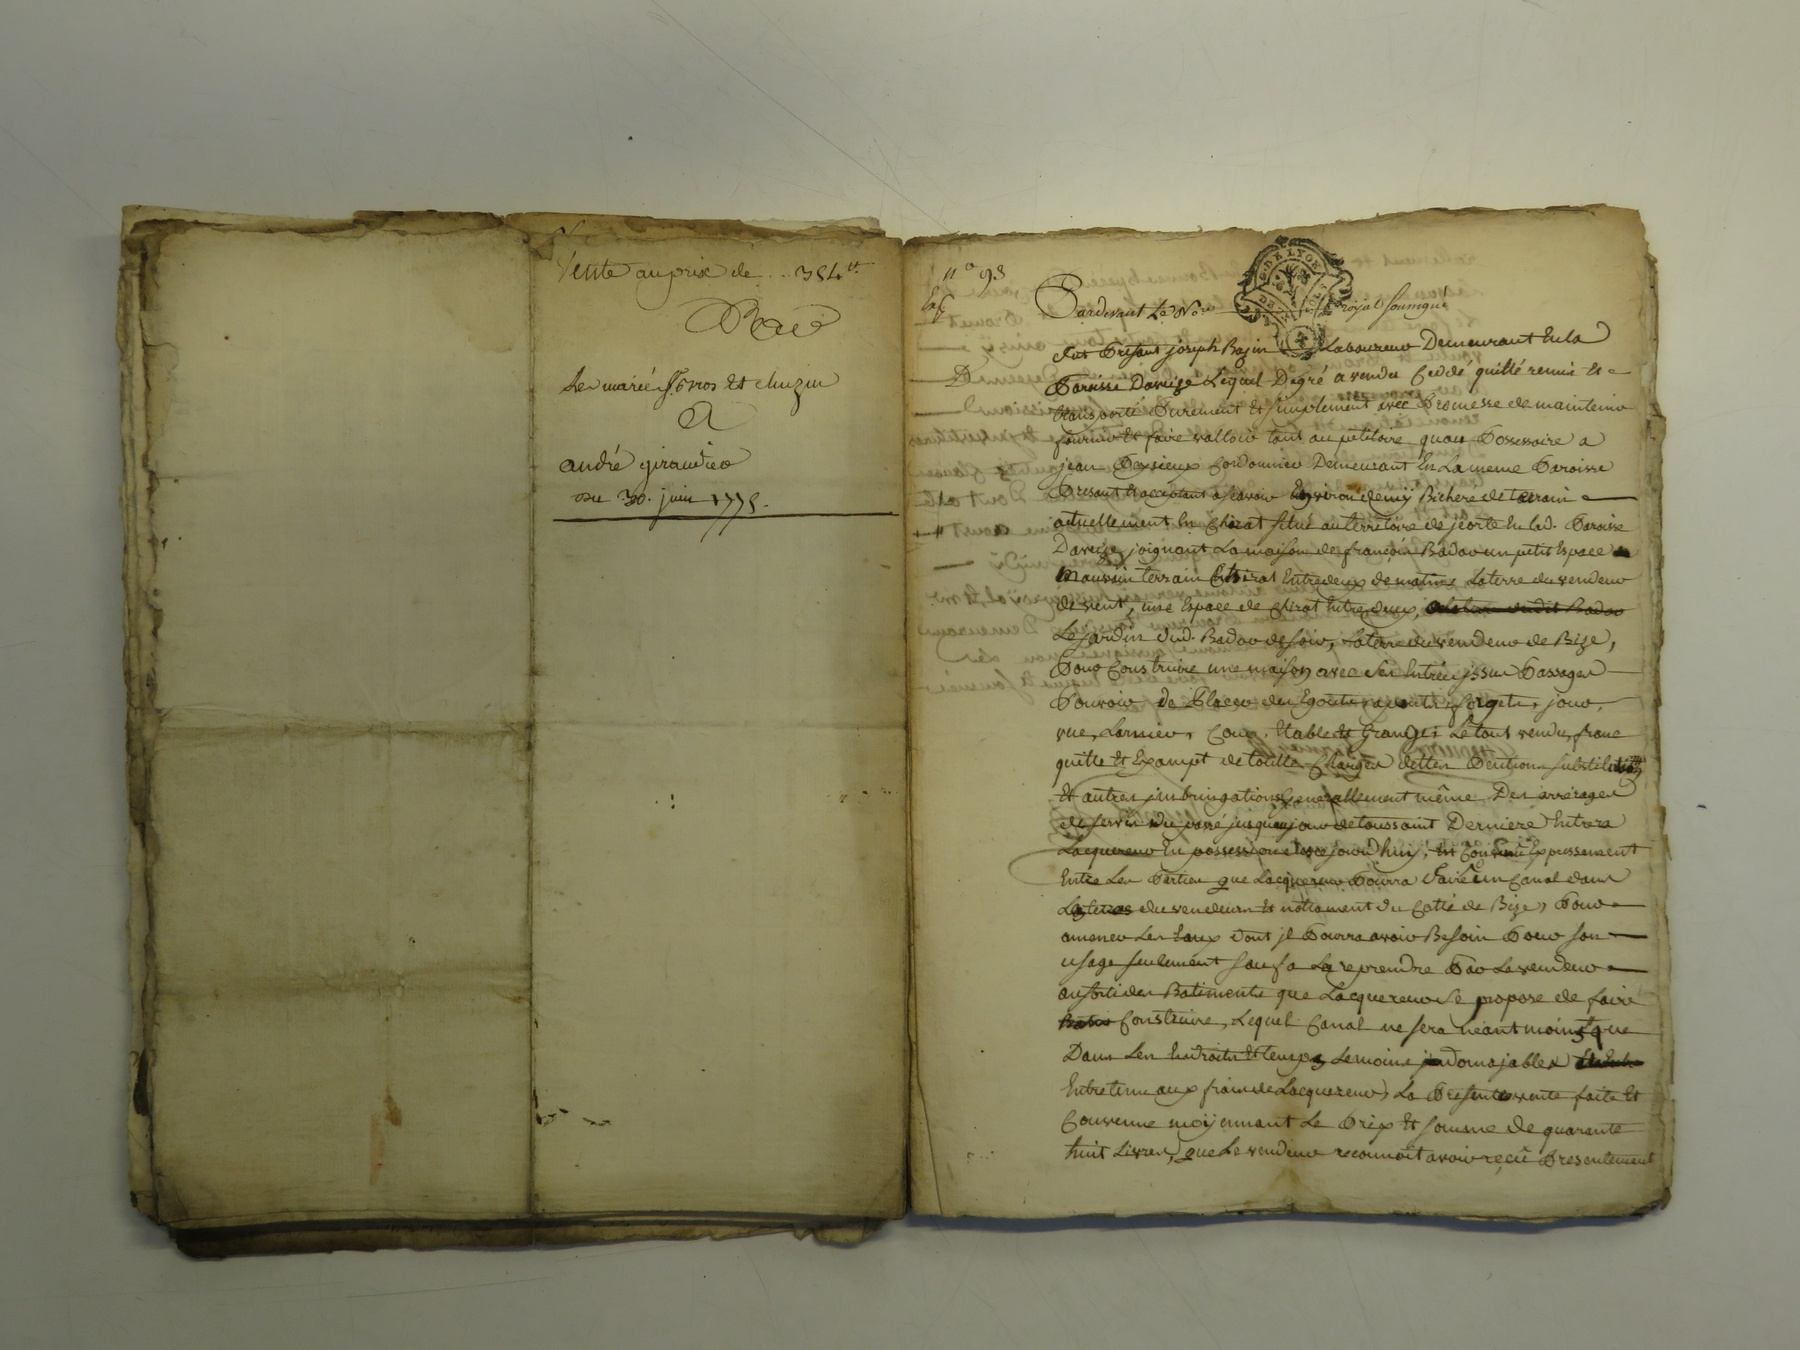 Vente au prix de .. 384tt
Par
Les mariés Gros et chuzin
A
andré giraudier
Du 30. juin 1775.
n° 93
Exp
G. DE LYON
Pardevant Le Nore royal soussigné
fut Présent joseph Bazin Laboureur Demeurant En la
Paroisse Daveize Lequel De gré a vendu Ceddé quitté remis et
transporté Purement et simplement avec Promesse de maintenir
fournir et faire valloir tant au petitoire quau Possessoire a
jean Cordonnier Demeurant En La meme Paroisse
Présent et acceptant a scavoir Environ demy Bichere de terrain
actuellement En Chirat situé au territoire de En lad. Paroisse
Daveize joignant La maison de françois Badar un petit Espace
Mauvain terrain Chirat Entredeux de matin La terre du vendeur
de vent, une Espace de Chirat Entredeux,
Le jardin dud. Badar de soir, La terre du vendeur de Bize,
Pour Construire une maison avec ses Entrées issues Passages
Pouvoir de Placer des Egouts forgets, jour,
vue, Larmier, Cour, Etable et Granges Le tout vendu franc
quitte et Exampt de touttes Charges dettes Pentions substitutions
et autres imbringations Generallement même Des arrérages
de servis du passé jusquaujour de toussaint Derniere Entrera
Lacquereur En possession des ce jourdhuy, Est Convenu Expressement
Entre Les Parties que Lacquereur Pourra faire un Canal dans
Les terres du vendeur et nottament du Cotté de Bize, Pour
amener Les Eaux dont jl Pourra avoir Besoin Pour son
usage seulement sauf a La reprendre Par Le vendeur
au sorti des Batiments que Lacquereur se propose de faire
Construire, Lequel Canal ne sera néantmoins que
Dans Les Endroits et temps Le moins domajables
Entretenu aux frais de Lacquereur, La Présente vente faite et
Convenue moyennant Le Prix et somme de quarante
huit Livres, que Le vendeur reconnoit avoir reçû Presentement